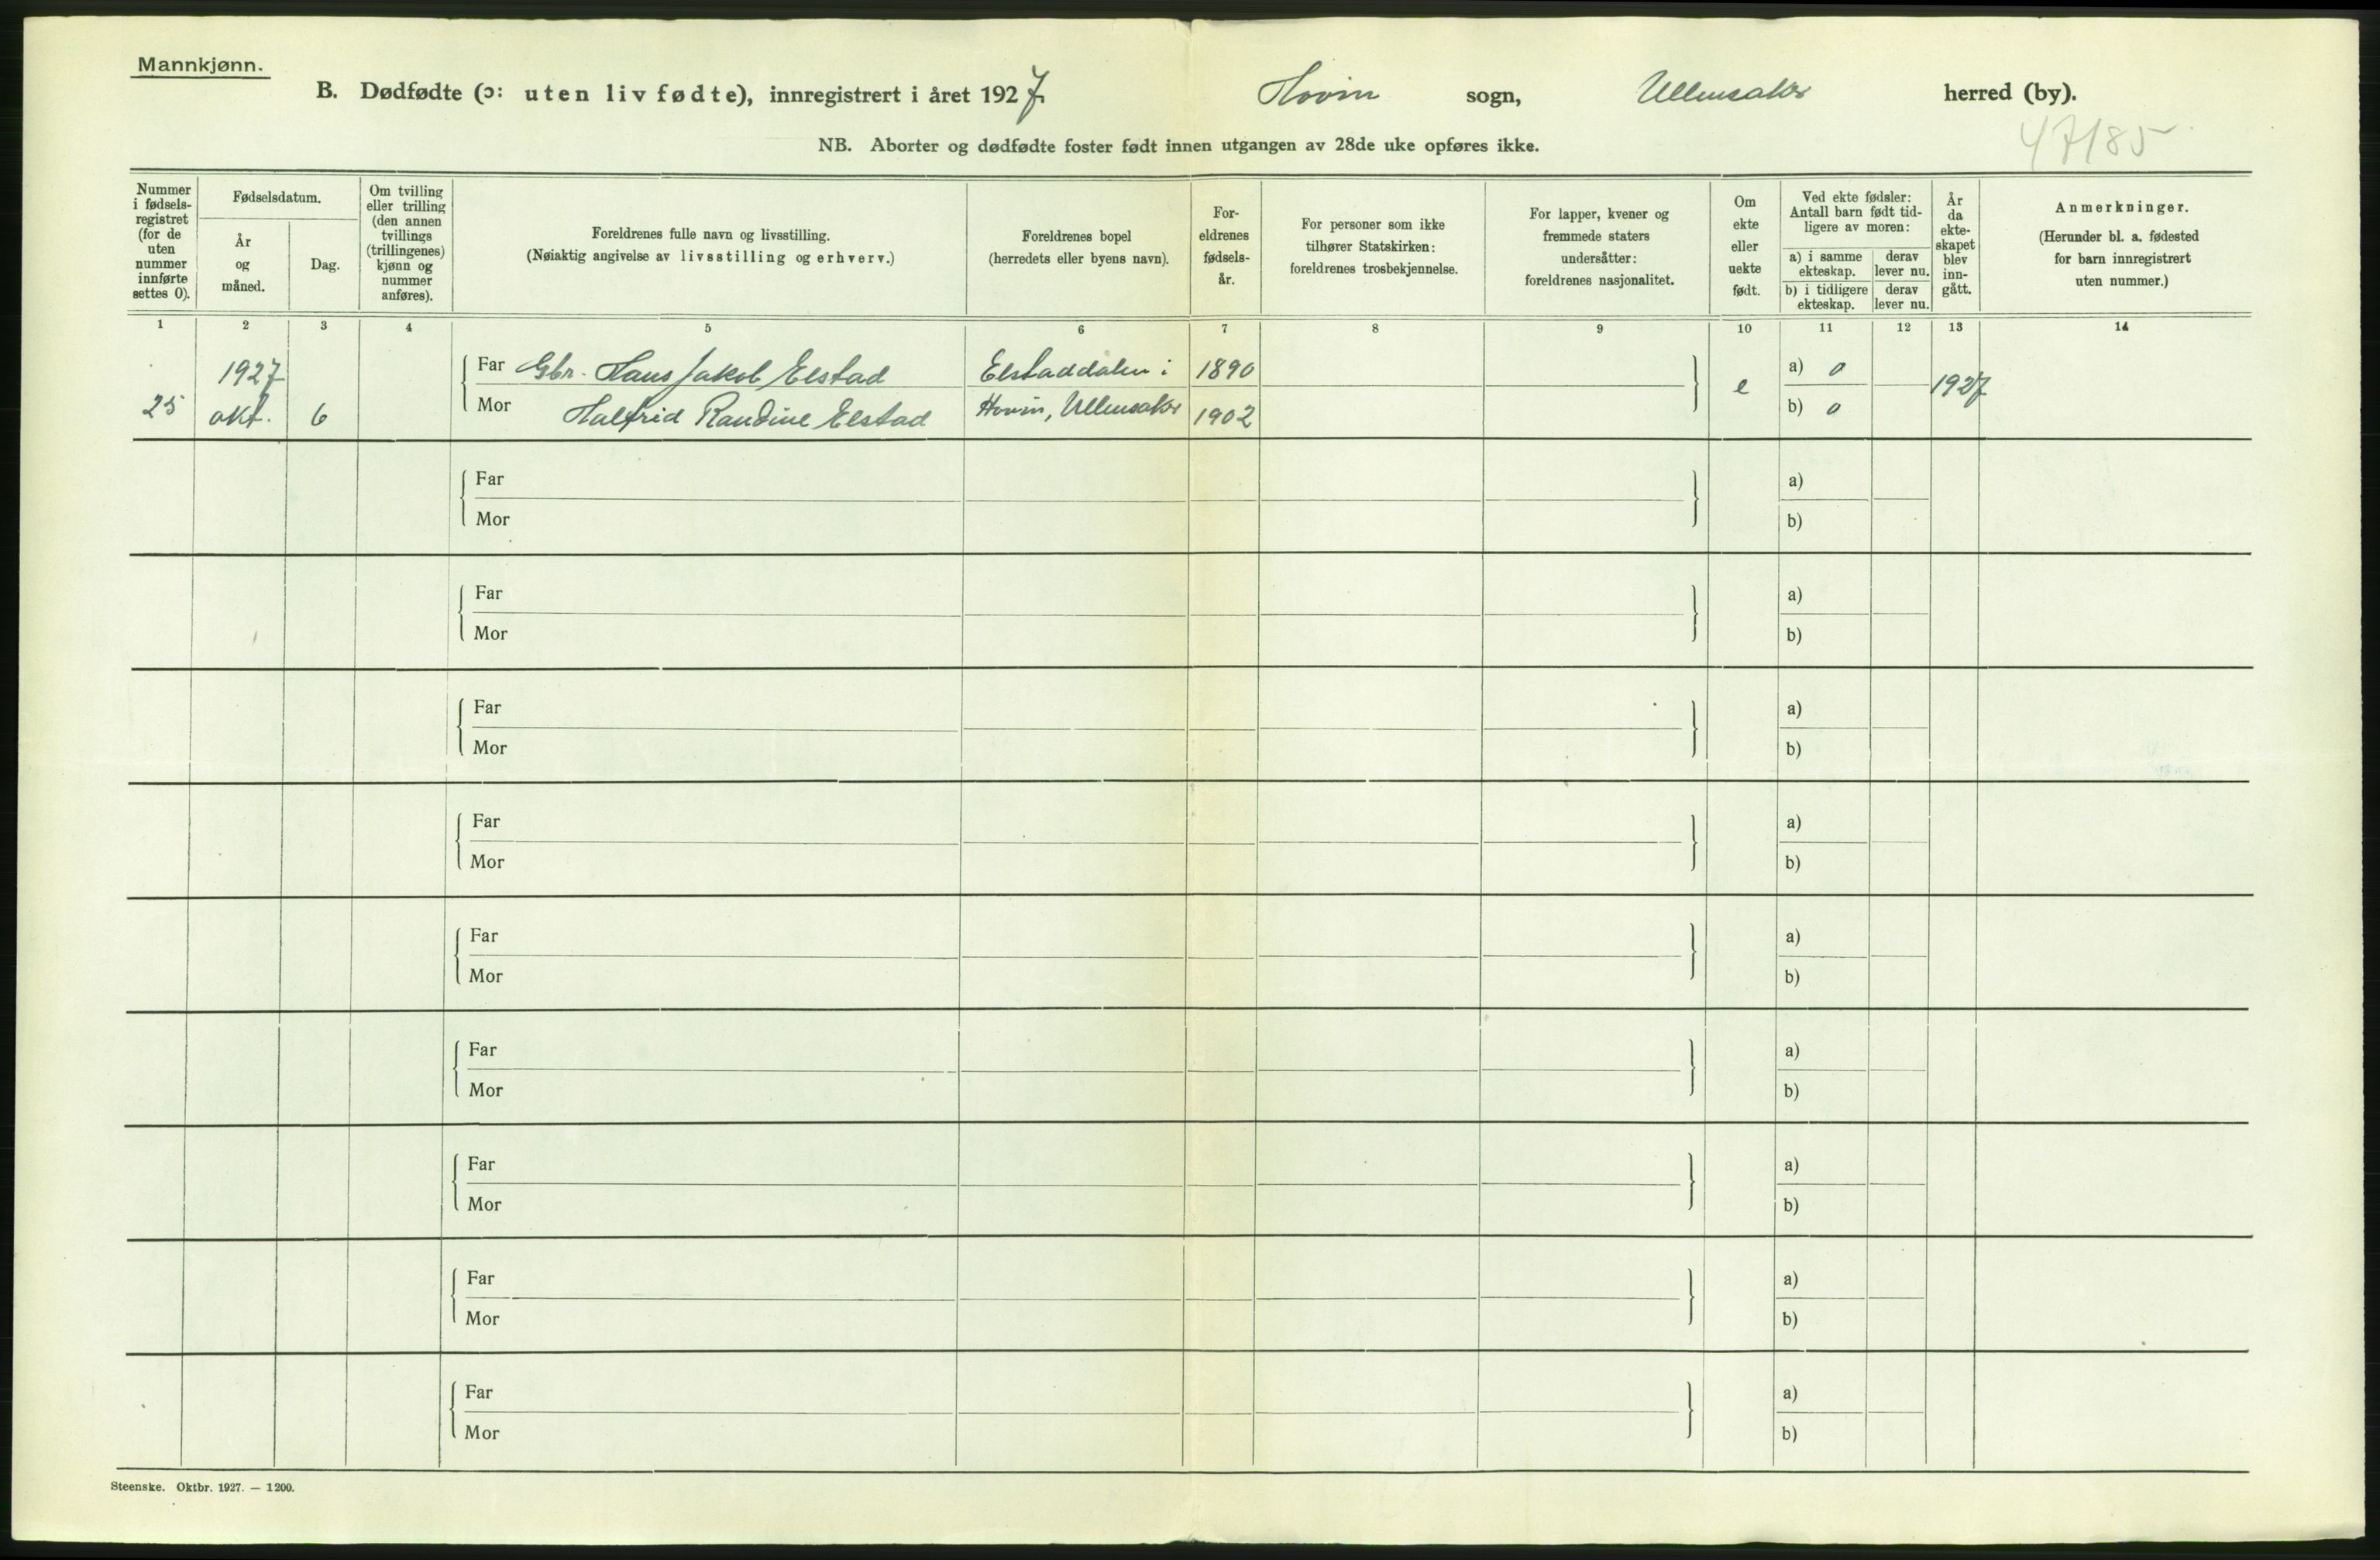 Mannkjønn.
B. Dødfødte (ɔ: uten liv fødte), innregistrert i året 1927 Hovin sogn, Ullensaker herred (by).
47185
NB. Aborter og dødfødte foster født innen utgangen av 28de uke opføres ikke.
Nummer i fødsels- registret (for de uten nummer innførte settes 0).
Fødselsdatum.
År og måned.
Dag.
Om tvilling eller trilling (den annen tvillings (trillingenes) kjønn og nummer anføres).
Foreldrenes fulle navn og livsstilling.
(Nøiaktig angivelse av livsstilling og erhverv.)
Foreldrenes bopel
(herredets eller byens navn).
For- eldrenes fødsels- år.
For personer som ikke tilhører Statskirken: foreldrenes trosbekjennelse.
For lapper, kvener og fremmede staters undersåtter: foreldrenes nasjonalitet.
Om ekte eller uekte født.
Ved ekte fødsler: Antall barn født tid- ligere av moren:
a) i samme ekteskap. derav lever nu.
b) i tidligere ekteskap. derav lever nu.
År da ekte- skapet blev inn- gått.
Anmerkninger.
(Herunder bl. a. fødested for barn innregistrert uten nummer.)
1 2 3 4 5 6 7 8 9 10 11 12 13 14
1927 Far Gbr. Hans Jakob Elstad Elstaddalen i 1890 a) 0
25 okt. 6 Mor Halfrid Randine Elstad Hovin, Ullensaker 1902 e b) 0 1927
Far a)
Mor b)
Far a)
Mor b)
Far a)
Mor b)
Far a)
Mor b)
Far a)
Mor b)
Far a)
Mor b)
Far a)
Mor b)
Far a)
Mor b)
Far a)
Mor b)
Steenske. Oktbr. 1927. — 1200.